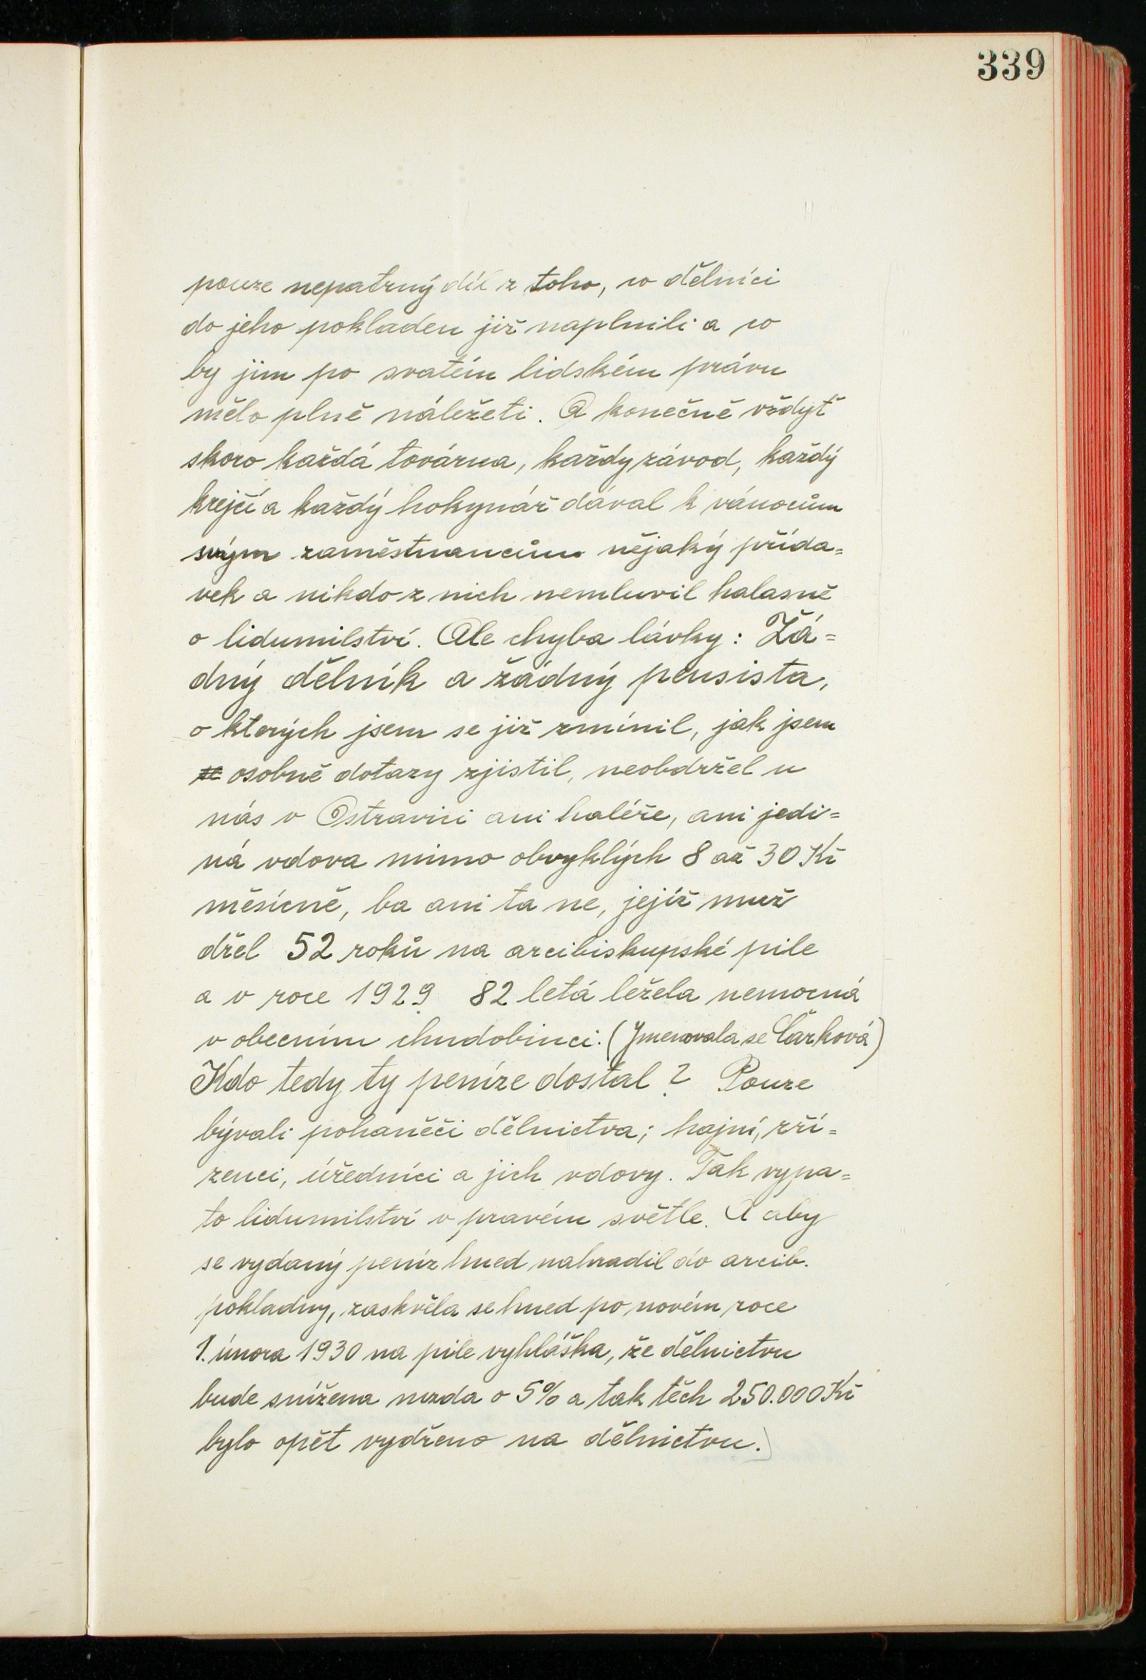 339
pouze nepatrný díl z toho, co dělníci
do jeho pokladen již naplnili a co
by jim po svatém lidském právu
mělo plně náležeti. A konečně vždyť
skoro každá továrna, každy závod, každý
krejčí a každý hokynář dával k vánocům
svým zaměstnancům nějaký přída=
vek a nikdo z nich nemluvil halasně
o lidumilství. Ale chyba lávky: Žá=
dný dělník a žádný pensista,
o kterých jsem se již zmínil, jak jsem
osobně dotazy zjistil, neobdržel u
nás v Ostravici ani haléře, ani jedi=
ná vdova mimo obvyklých 8 až 30 Kč
měsícně, ba ani ta ne, jejíž muž
dřel 52 roků na arcibiskupské pile
a v roce 1929 82 letá ležela nemocná
v obecním chudobinci. (Jmenovala se Čarková)
Kdo tedy ty peníze dostal? Pouze
bývali pohaněči dělnictva; hajní, zří=
zenci, úředníci a jich vdovy. Tak vypa=
to lidumilství v pravém světle. A aby
se vydaný peníz hned nahradil do arcib.
pokladny, zaskvěla se hned po novém roce
1. února 1930 na pile vyhláška, že dělnictvu
bude snížena mzda o 5% a tak těch 250.000 Kč
bylo opět vydřeno na dělnictvu.